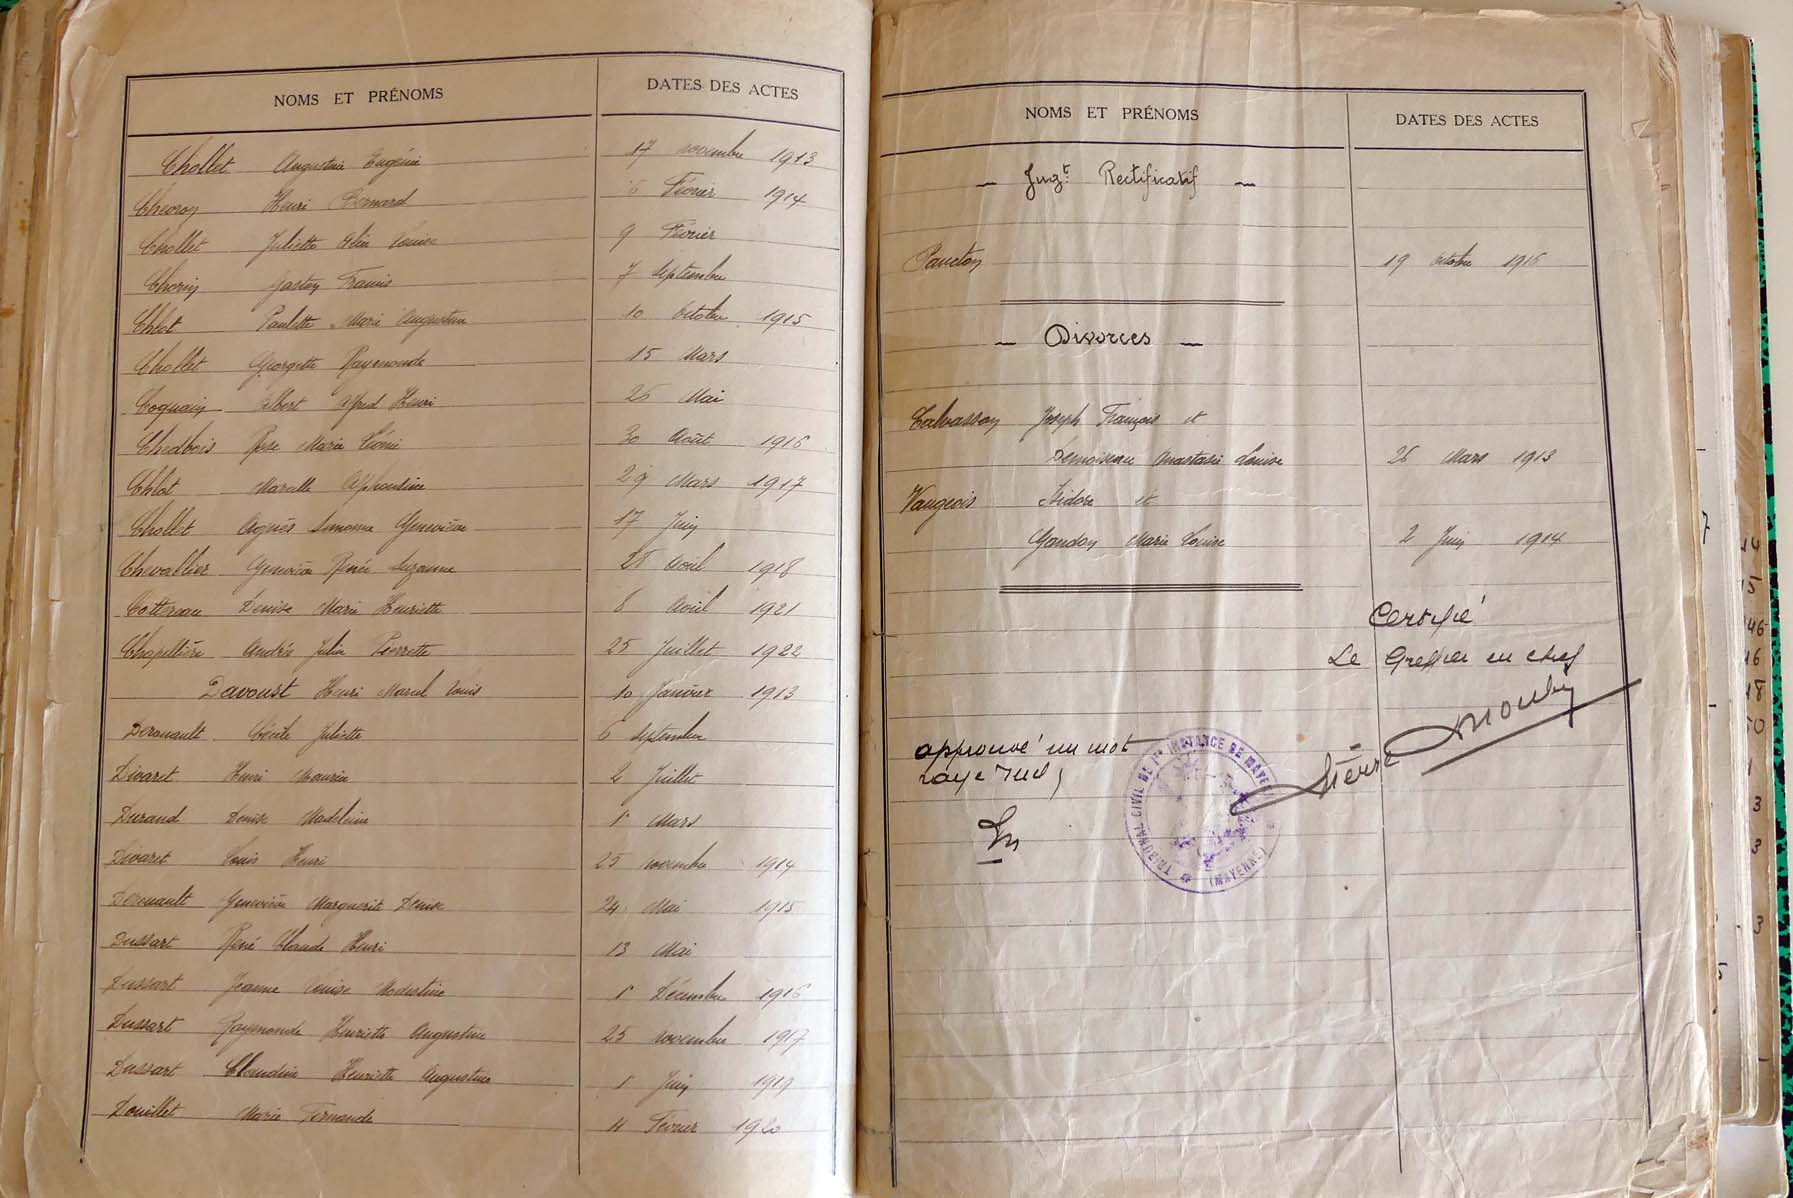 NOMS ET PRÉNOMS DATES DES ACTES
Chollet Augustin Eugénie 17 novembre 1913
Chevron Henri Bernard Février 1914
Chollet Juliette Louise 9 Février
Gaston Francis 7 septembre
Chlot Paulette Marie Augustine 10 Octobre 1915
Chollet Georgette Raymonde 15 Mars
Coquain Albert Alfred Henri 26 Mai
Chedbois Rose Marie 30 Août 1916
Chlot Marcelle Alphonsine 29 Mars 1917
Chollet Agnès Simonne Geneviève 17 Juin
Chevallier Geneviève Renée Suzanne 28 Avril 1918
Cottereau Denise Marie Henriette 8 Avril 1921
Chapellière Andrée Julia Pierrette 25 Juillet 1922
Davoust Henri Marcel Louis 10 Janvier 1913
Derouault Cécile Juliette 6 septembre
Divaret Henri Maurice 2 Juillet
Durand Denise Madeleine 1r Mars
Divaret Louis Henri 25 novembre 1914
Derouault Geneviève Marguerite Denise 24 Mai 1915
Dussart René Claude Henri 13 Mai
Dussart Jeanne Louise Modestine 1r Décembre 1916
Dussart Raymonde Henriette Augustine 25 novembre 1917
Dussart Claudine Henriette Augustine 1r Juin 1919
Douillet Marie Fernande 11 Février 1920
NOMS ET PRÉNOMS DATES DES ACTES
Jugt Rectificatif
Paucton 19 Octobre 1916
Divorces
Calvasson Joseph François et
Démoiseau Anastasie Louise 26 Mars 1913
Vaugeois Isidore et
Gandon Marie Louise 2 Juin 1914
Certifié
Le Greffier en chef
approuvé un mot
rayé nul
TRIBUNAL CIVIL DE 1re INSTANCE DE MAYENNE (MAYENNE)